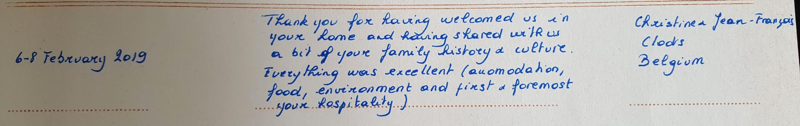 6-8 February 2019
Thank you for having welcomed us in
your home and having shared with us
a bit of your family history & culture.
Everything was excellent (auomodation,
food, environment and first & foremost
your hospitality)
Christine & Jean-François
Clods
Belgium